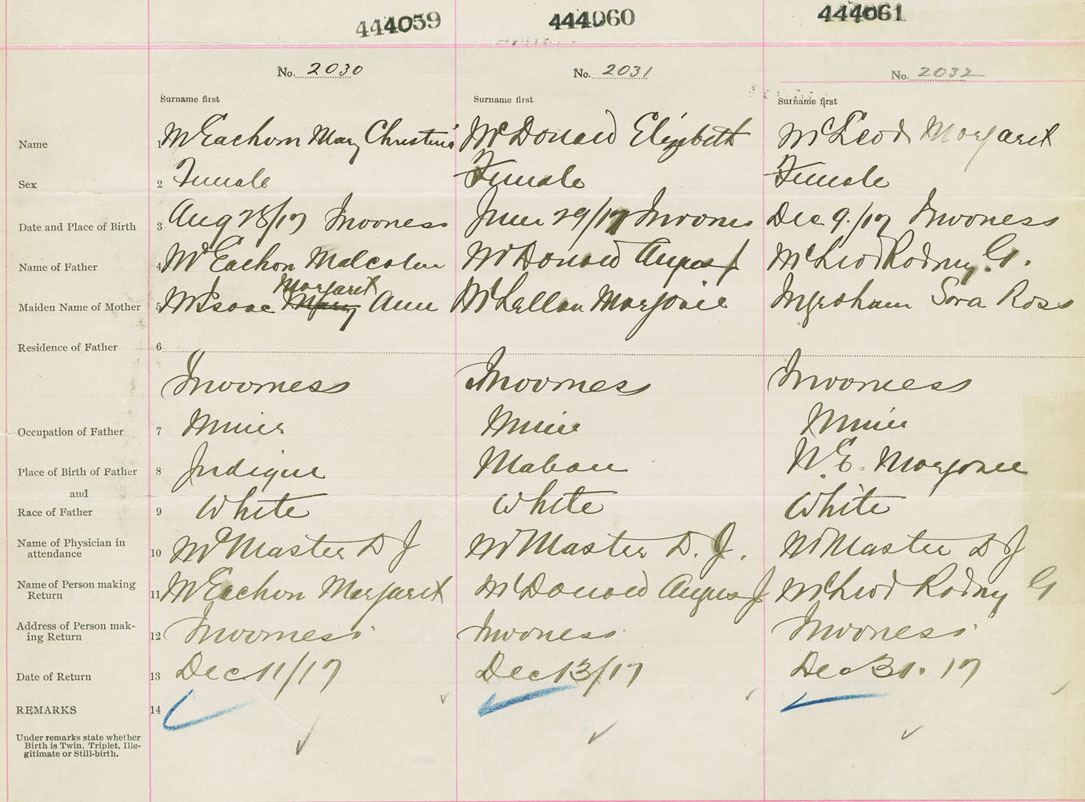 444059 444060 444061
No. 2030 No. 2031 No. 2032
Surname first Surname first Surname first
Name 1 McEachern Mary Christina McDonald Elizbeth McLeod Margaret
Sex 2 Female Female Female
Date and Place of Birth 3 Aug 28/17 Inverness June 29/17 Inverness Dec 9/17 Inverness
Name of Father 4 McEachern Malcolm McDonald Angus J McLeod Rodney G.
Margaret
Maiden Name of Mother 5 McIsaac Mary Ann McLellan Marjorie Ingraham Sara Ross
Residence of Father 6
Inverness Inverness Inverness
Occupation of Father 7 Miner Miner Miner
Place of Birth of Father 8 Judique Mabou N.E. Margaree
and
Race of Father 9 White White White
Name of Physician in
attendance 10 McMaster D J McMaster D. J. McMaster D J
Name of Person making
Return 11 McEachern Margaret McDonald Angus J McLeod Rodney G
Address of Person mak-
ing Return 12 Inverness Inverness Inverness
Date of Return 13 Dec 11/17 Dec 13/17 Dec 31. 17
REMARKS 14
Under remarks state whether
Birth is Twin, Triplet, Ille-
gitimate or Still-birth.